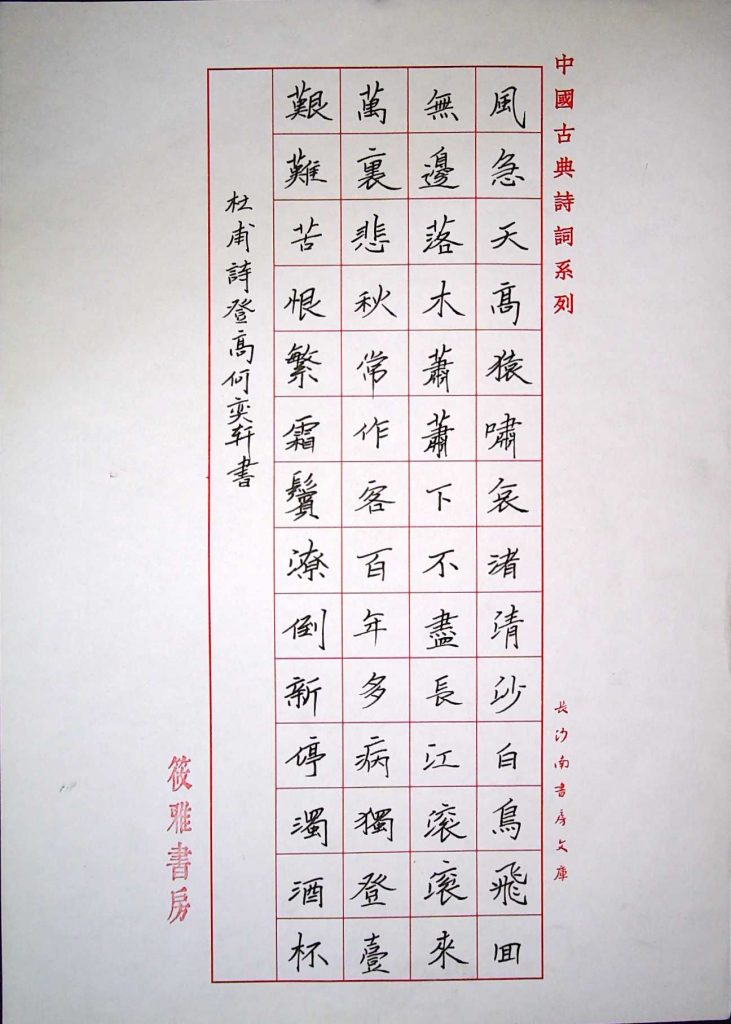 中國古典詩詞系列
風急天高猿嘯哀渚清沙白鳥飛回
無邊落木蕭蕭下不盡長江滾滾來
萬裏悲秋常作客百年多病獨登臺
艱難苦恨繁霜鬢潦倒新停濁酒杯
杜甫詩登高何奕軒書
長沙南書房文庫
筱雅書房